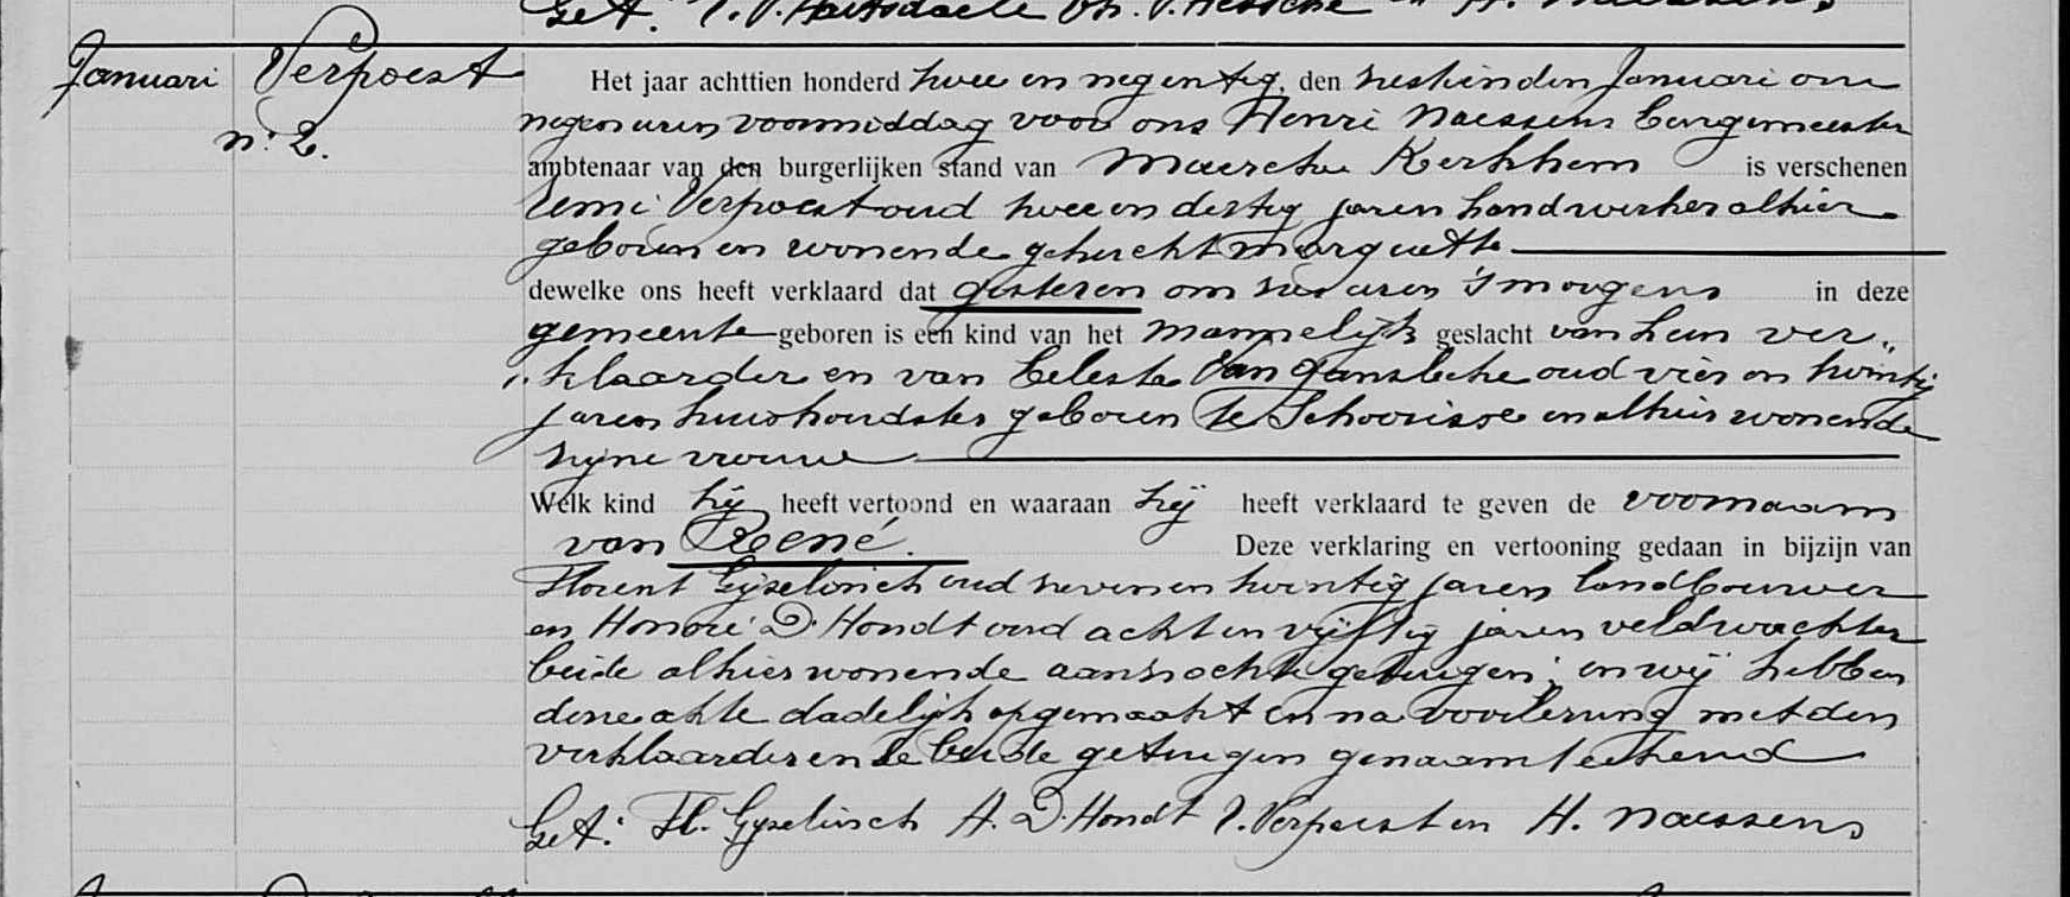 Get:
Januari Verpoest
n: 2.
Het jaar achttien honderd twee en negentig, den zestienden Januari om
negen uren voormiddag voor ons Henri Naessens burgemeester
ambtenaar van den burgerlijken stand van Maercke Kerkhem is verschenen
Remi Verpoest oud twee en dertig jaren handwerker alhier
geboren en wonende gehucht marquette
dewelke ons heeft verklaard dat gisteren om zes uren 's morgens in deze
gemeente geboren is een kind van het mannelijk geslacht van hem ver„
„klaarder en van Celeste Van Gansbeke oud vier en twintig
jaren huishoudster geboren te Schoorisse en alhier wonende
zijne vrouw
Welk kind hij heeft vertoond en waaraan hij heeft verklaard te geven de voornaam
van René. Deze verklaring en vertooning gedaan in bijzijn van
Florent Gyselinch oud zeven en twintig jaren landbouwer
en Honoré D'Hondt oud acht en vijftig jaren veldwachter
beide alhier wonende aanzochte getuigen; en wij hebben
deze akte dadelijk opgemaakt en na voorlezing met den
verklaarder en de beide getuigen genaamteekend
Get: Fl. Gyselinch H. D'Hondt R. Verpoest en H. Naessens